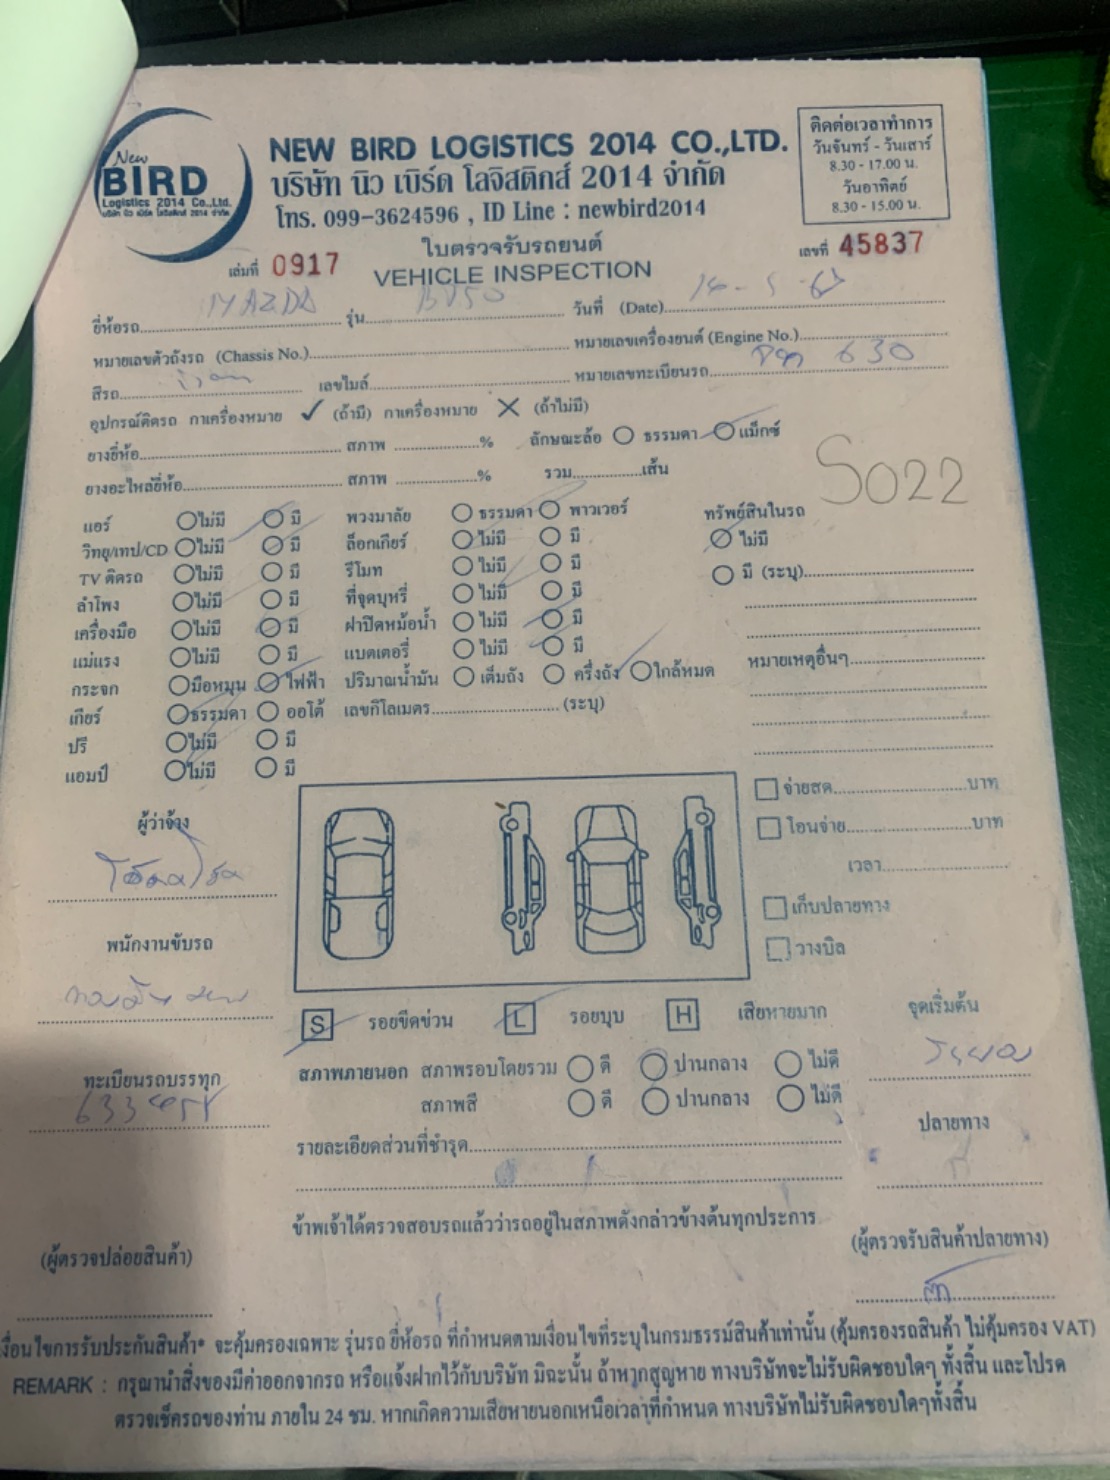 New
BIRD
Logistics 2014 Co.,Ltd.
บริษัท นิว เบิร์ด โลจิสติกส์ 2014 จำกัด
NEW BIRD LOGISTICS 2014 CO.,LTD.
บริษัท นิว เบิร์ด โลจิสติกส์ 2014 จำกัด
โทร. 099-3624596 , ID Line : newbird2014
ติดต่อเวลาทำการ
วันจันทร์ - วันเสาร์
8.30 - 17.00 น.
วันอาทิตย์
8.30 - 15.00 น.
ใบตรวจรับรถยนต์
เล่มที่ 0917 VEHICLE INSPECTION เลขที่ 45837
ยี่ห้อรถ MAZDA รุ่น BT50 วันที่ (Date)
หมายเลขตัวถังรถ (Chassis No.) หมายเลขเครื่องยนต์ (Engine No.)
สีรถ เลขไมล์ หมายเลขทะเบียนรถ 630
อุปกรณ์ติดรถ กาเครื่องหมาย ✓ (ถ้ามี) กาเครื่องหมาย ✕ (ถ้าไม่มี)
ยางยี่ห้อ สภาพ % ลักษณะล้อ ธรรมดา แม็กซ์
ยางอะไหล่ยี่ห้อ สภาพ % รวม เส้น
S022
แอร์ ไม่มี มี พวงมาลัย ธรรมดา พาวเวอร์ ทรัพย์สินในรถ
วิทยุ/เทป/CD ไม่มี มี ล็อกเกียร์ ไม่มี มี ไม่มี
TV ติดรถ ไม่มี มี รีโมท ไม่มี มี มี (ระบุ)
ลำโพง ไม่มี มี ที่จุดบุหรี่ ไม่มี มี
เครื่องมือ ไม่มี มี ฝาปิดหม้อน้ำ ไม่มี มี
แม่แรง ไม่มี มี แบตเตอรี่ ไม่มี มี หมายเหตุอื่นๆ
กระจก มือหมุน ไฟฟ้า ปริมาณน้ำมัน เต็มถัง ครึ่งถัง ใกล้หมด
เกียร์ ธรรมดา ออโต้ เลขกิโลเมตร (ระบุ)
ปรี ไม่มี มี
แอมป์ ไม่มี มี
จ่ายสด บาท
โอนจ่าย บาท
เวลา
เก็บปลายทาง
วางบิล
ผู้ว่าจ้าง
พนักงานขับรถ
S รอยขีดข่วน L รอยบุบ H เสียหายมาก จุดเริ่มต้น
ระยอง
สภาพภายนอก สภาพรอบโดยรวม ดี ปานกลาง ไม่ดี
ทะเบียนรถบรรทุก
สภาพสี ดี ปานกลาง ไม่ดี
ปลายทาง
รายละเอียดส่วนที่ชำรุด
ข้าพเจ้าได้ตรวจสอบรถแล้วว่ารถอยู่ในสภาพดังกล่าวข้างต้นทุกประการ
(ผู้ตรวจปล่อยสินค้า) (ผู้ตรวจรับสินค้าปลายทาง)
งื่อนไขการรับประกันสินค้า* จะคุ้มครองเฉพาะ รุ่นรถ ยี่ห้อรถ ที่กำหนดตามเงื่อนไขที่ระบุในกรมธรรม์สินค้าเท่านั้น (คุ้มครองรถสินค้า ไม่คุ้มครอง VAT)
REMARK : กรุณานำสิ่งของมีค่าออกจากรถ หรือแจ้งฝากไว้กับบริษัท มิฉะนั้น ถ้าหากสูญหาย ทางบริษัทจะไม่รับผิดชอบใดๆ ทั้งสิ้น และโปรด
ตรวจเช็ครถของท่าน ภายใน 24 ชม. หากเกิดความเสียหายนอกเหนือเวลาที่กำหนด ทางบริษัทไม่รับผิดชอบใดๆทั้งสิ้น